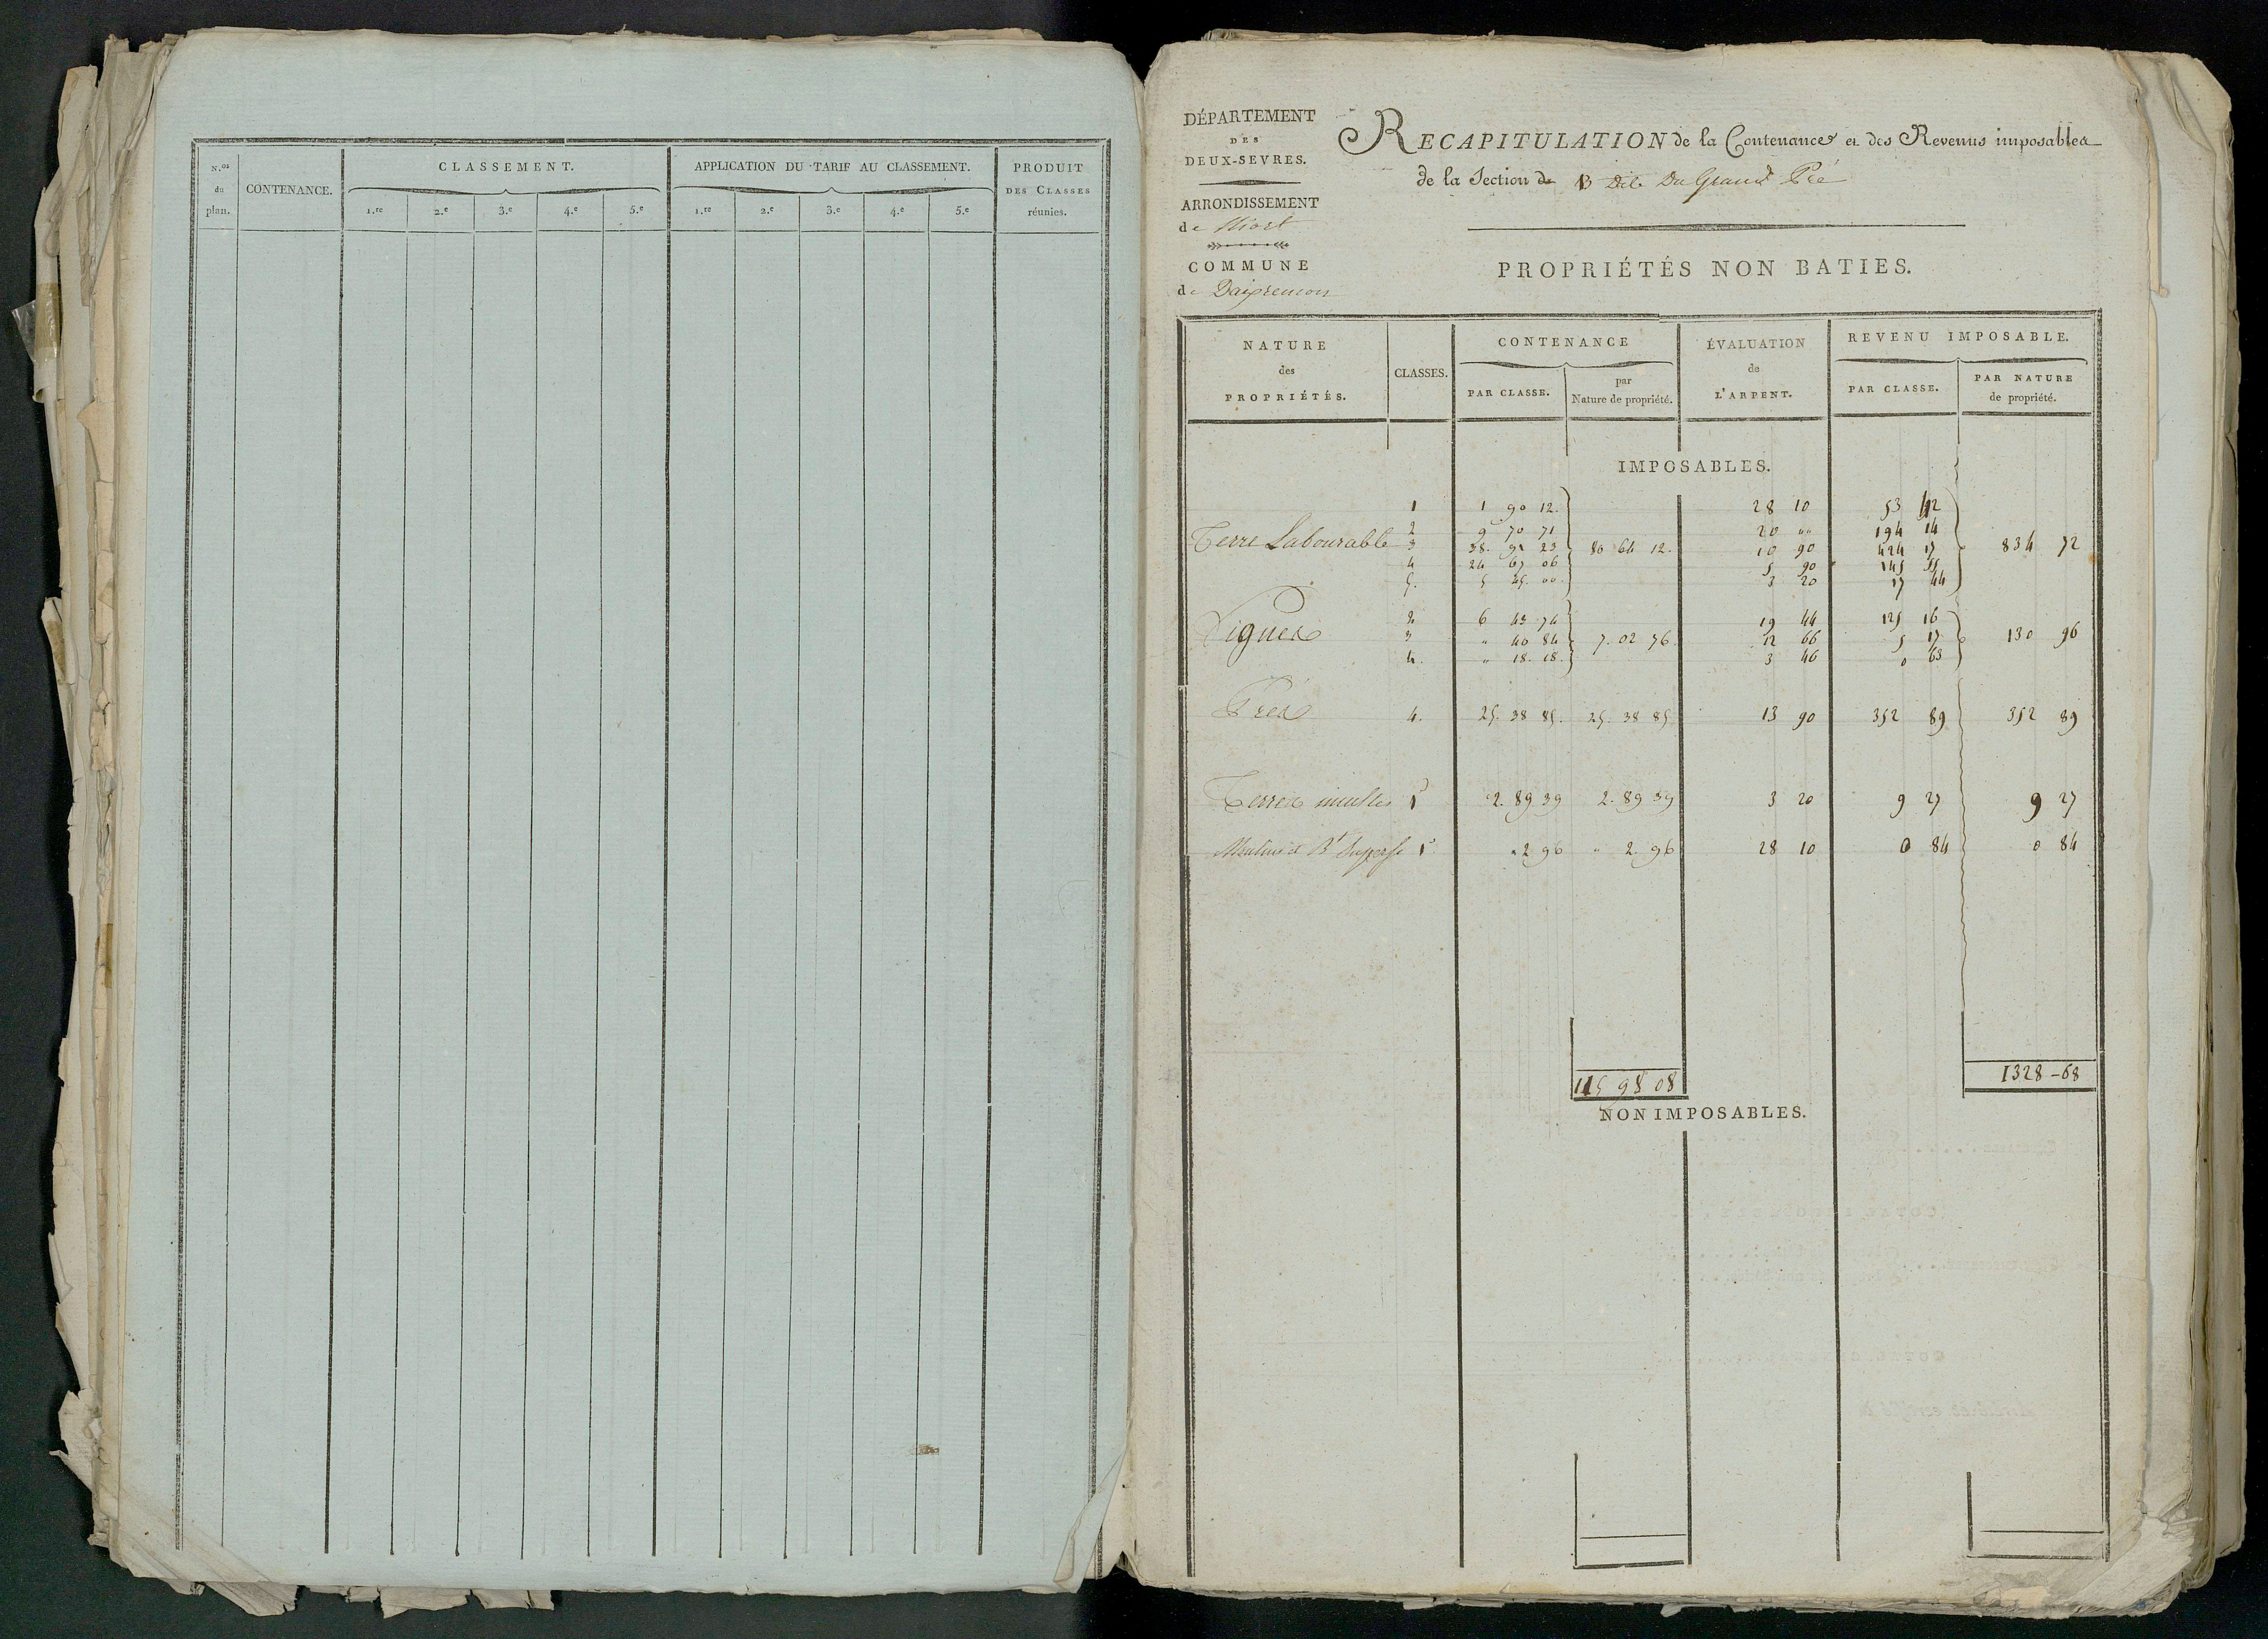 N.os
du
plan.
CONTENANCE.
CLASSEMENT.
1.re 2.e 3.e 4.e 5.e
APPLICATION DU TARIF AU CLASSEMENT.
1.re 2.e 3.e 4.e 5.e
PRODUIT
DES CLASSES
réunies.
DÉPARTEMENT
DES
DEUX-SEVRES.
ARRONDISSEMENT
de Niort
COMMUNE
de
RECAPITULATION de la Contenance et des Revenus imposables
de la Section de B Dite Du Grand Pré
PROPRIÉTÉS NON BATIES.
NATURE
des
PROPRIÉTÉS.
CLASSES.
CONTENANCE
PAR CLASSE.
par
Nature de propriété.
ÉVALUATION
de
L'ARPENT.
REVENU IMPOSABLE.
PAR CLASSE.
PAR NATURE
de propriété.
IMPOSABLES.
1 1 90 12. 28 10 53 42
2 9 70 71 20 „ 194 14
Terre Labourable 3 38. 91 23 80 64 12. 10 90 424 17 834 72
4 24 67 06 5 90 145 55
5. 5 45. 00. 3 20 17 44
2 6 43 74 19 44 125 16
Vignes 3 „ 40 84 7. 02 76. 12 66 5 17 130 96
4. „ 18. 18. 3 46 0 63
Prés 4. 25. 38 85. 25. 38 85 13 90 352 89 352 89
Terres incultes 1 2. 89 39 2. 89 39 3 20 9 27 9 27
1 „ 2 96 „ 2. 96 28 10 0 84 0 84
115 98 08 1328-68
NON IMPOSABLES.